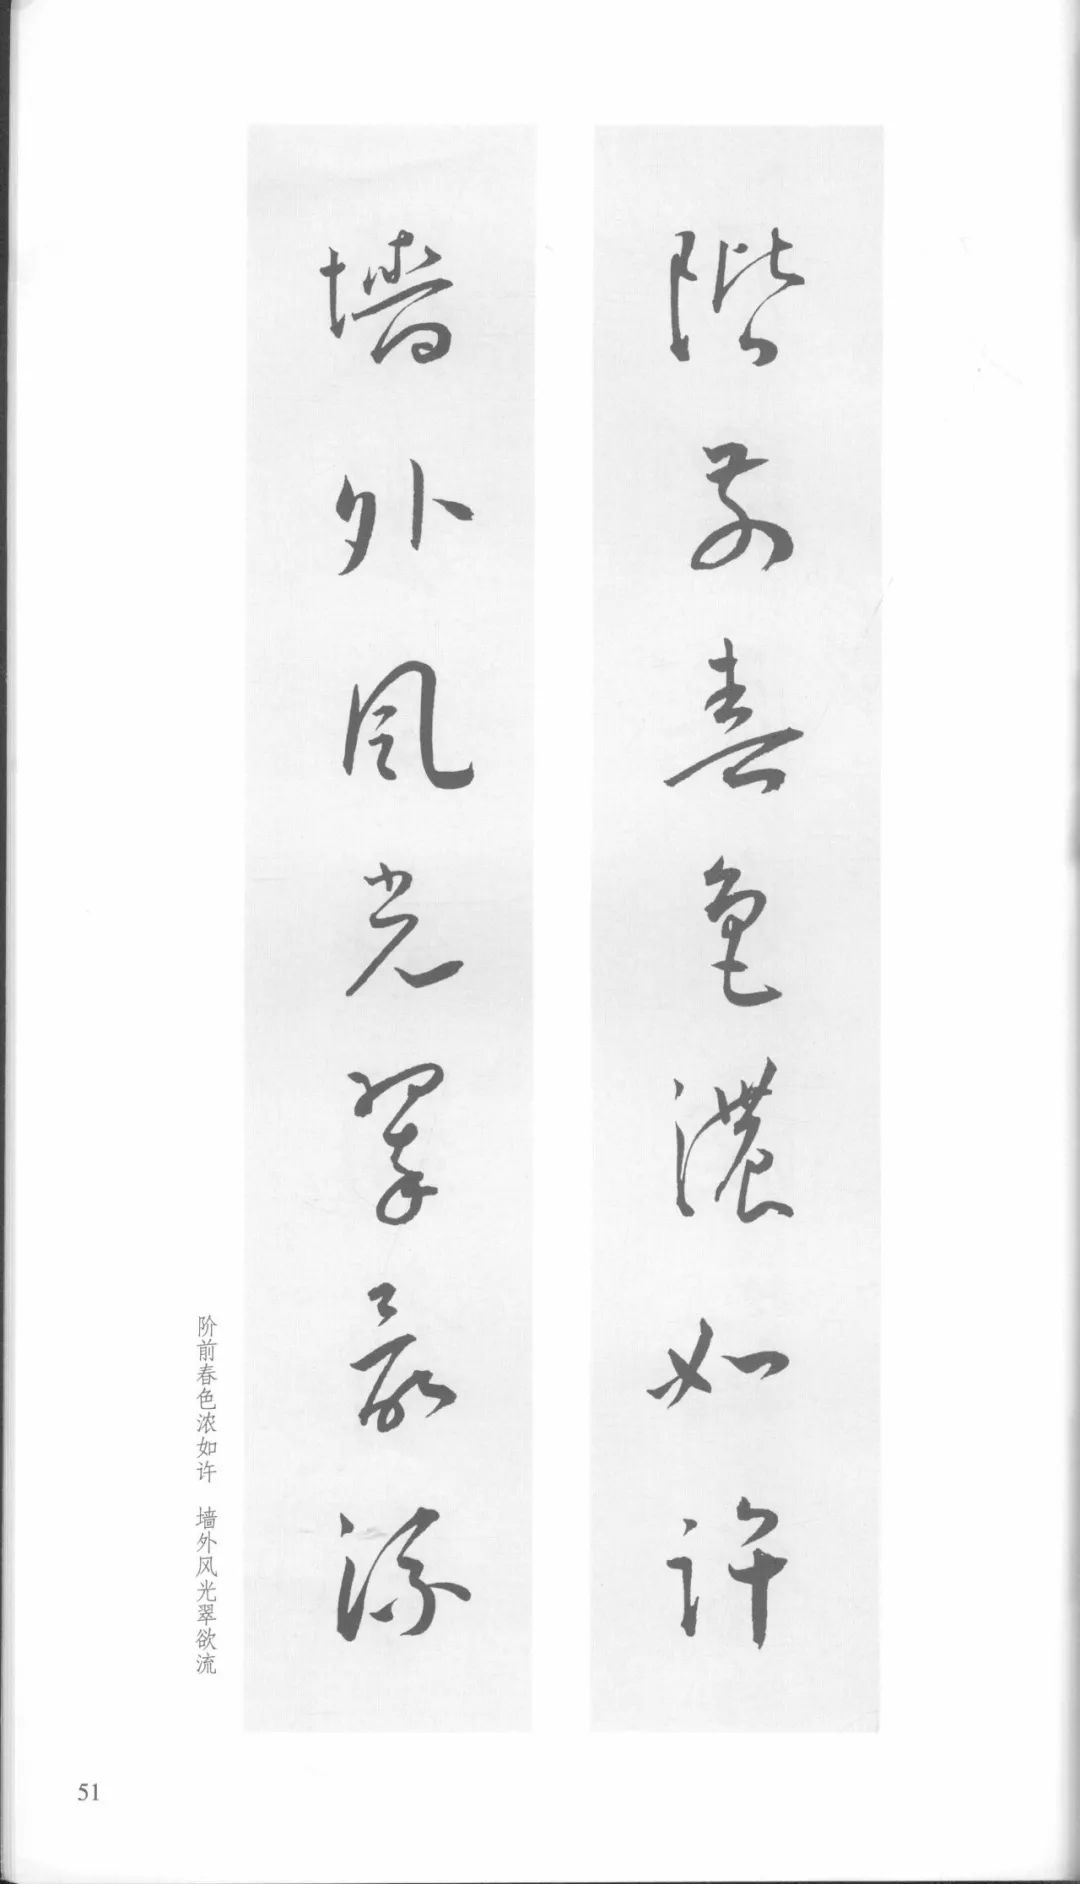 階前春色濃如許
墻外風光翠欲流
阶前春色浓如许 墙外风光翠欲流
51